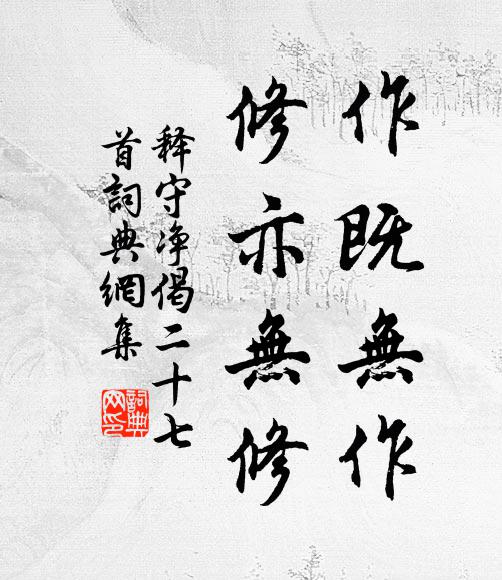 作既無作
修亦無修
释守净偈二十七
首詞典網集
詞典网印